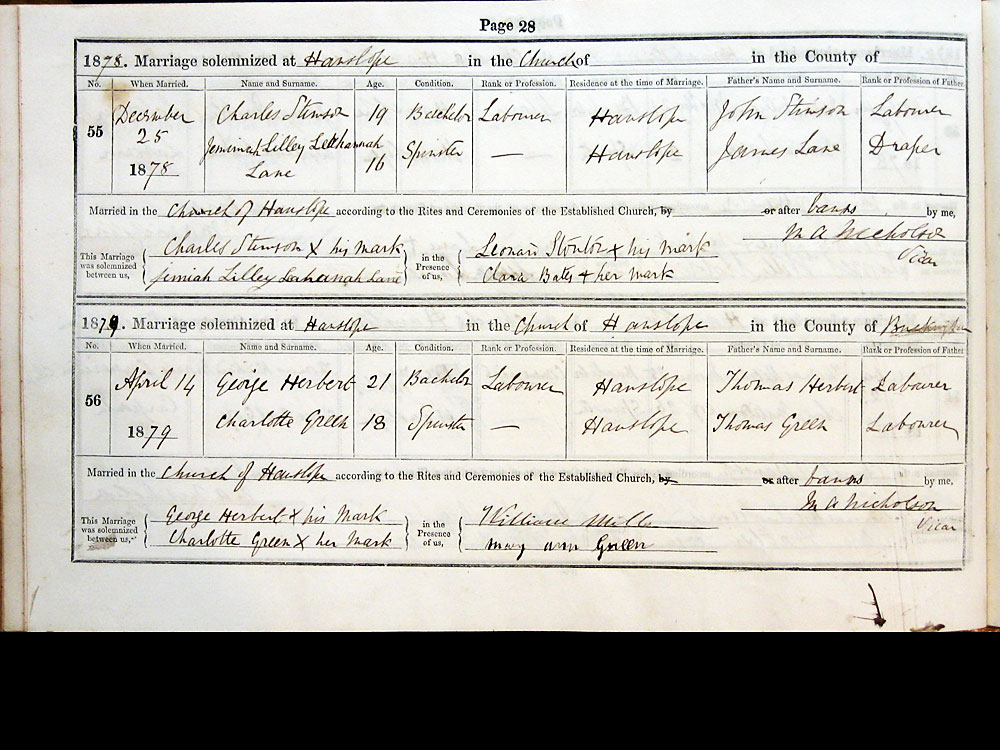 Page 28
1878. Marriage solemnized at Hanslope in the Church of in the County of
No. When Married. Name and Surname. Age. Condition. Rank or Profession. Residence at the time of Marriage. Father's Name and Surname. Rank or Profession of Father.
55 December 25 1878 Charles Stinson 19 Bachelor Labourer Hanslope John Stinson Labourer
Jemimah Lilley Leahannah Lane 16 Spinster — Hanslope James Lane Draper
Married in the Church of Hanslope according to the Rites and Ceremonies of the Established Church, by or after banns by me,
M A Nicholson
Vicar
This Marriage was solemnized between us, Charles Stinson X his mark in the Presence of us, Leonard X his mark
Jemiah Lilley Leahannah Lane Clara Bates + her mark
1879. Marriage solemnized at Hanslope in the Church of Hanslope in the County of Buckingham
No. When Married. Name and Surname. Age. Condition. Rank or Profession. Residence at the time of Marriage. Father's Name and Surname. Rank or Profession of Father
56 April 14 1879 George Herbert 21 Bachelor Labourer Hanslope Thomas Herbert Labourer
Charlotte Green 18 Spinster — Hanslope Thomas Green Labourer
Married in the Church of Hanslope according to the Rites and Ceremonies of the Established Church, by or after banns by me,
M A Nicholson
Vicar
This Marriage was solemnized between us, George Herbert X his mark in the Presence of us, William Mills
Charlotte Green X her mark Mary ann Green